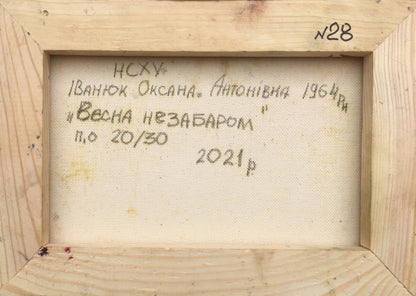 N28
НСХУ
Іванюк Оксана. Антонівна 1964 рн
„Весна незабаром"
п,о 20/30
2021 р